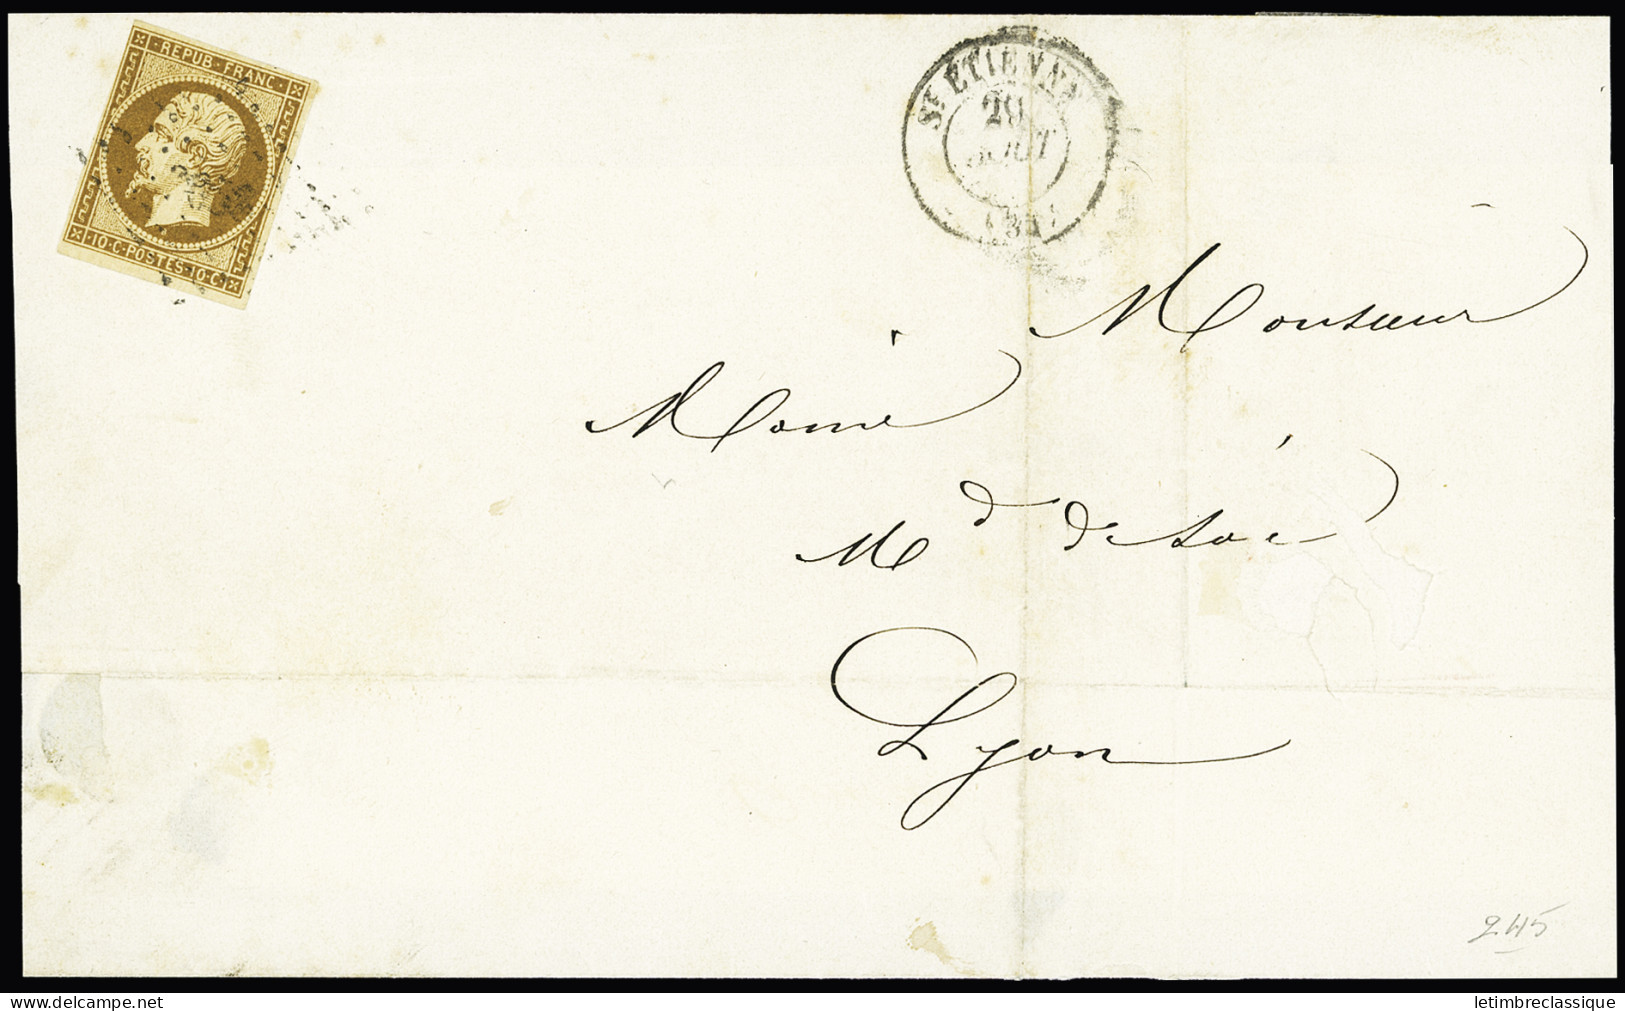 REPUB · FRANC ·
· 10 · C · POSTES · 10 · C ·
ST ETIENNE
29
AOUT
Monsieur
Moniè
Md de soie
Lyon
245
delcampe.net
letimbreclassique